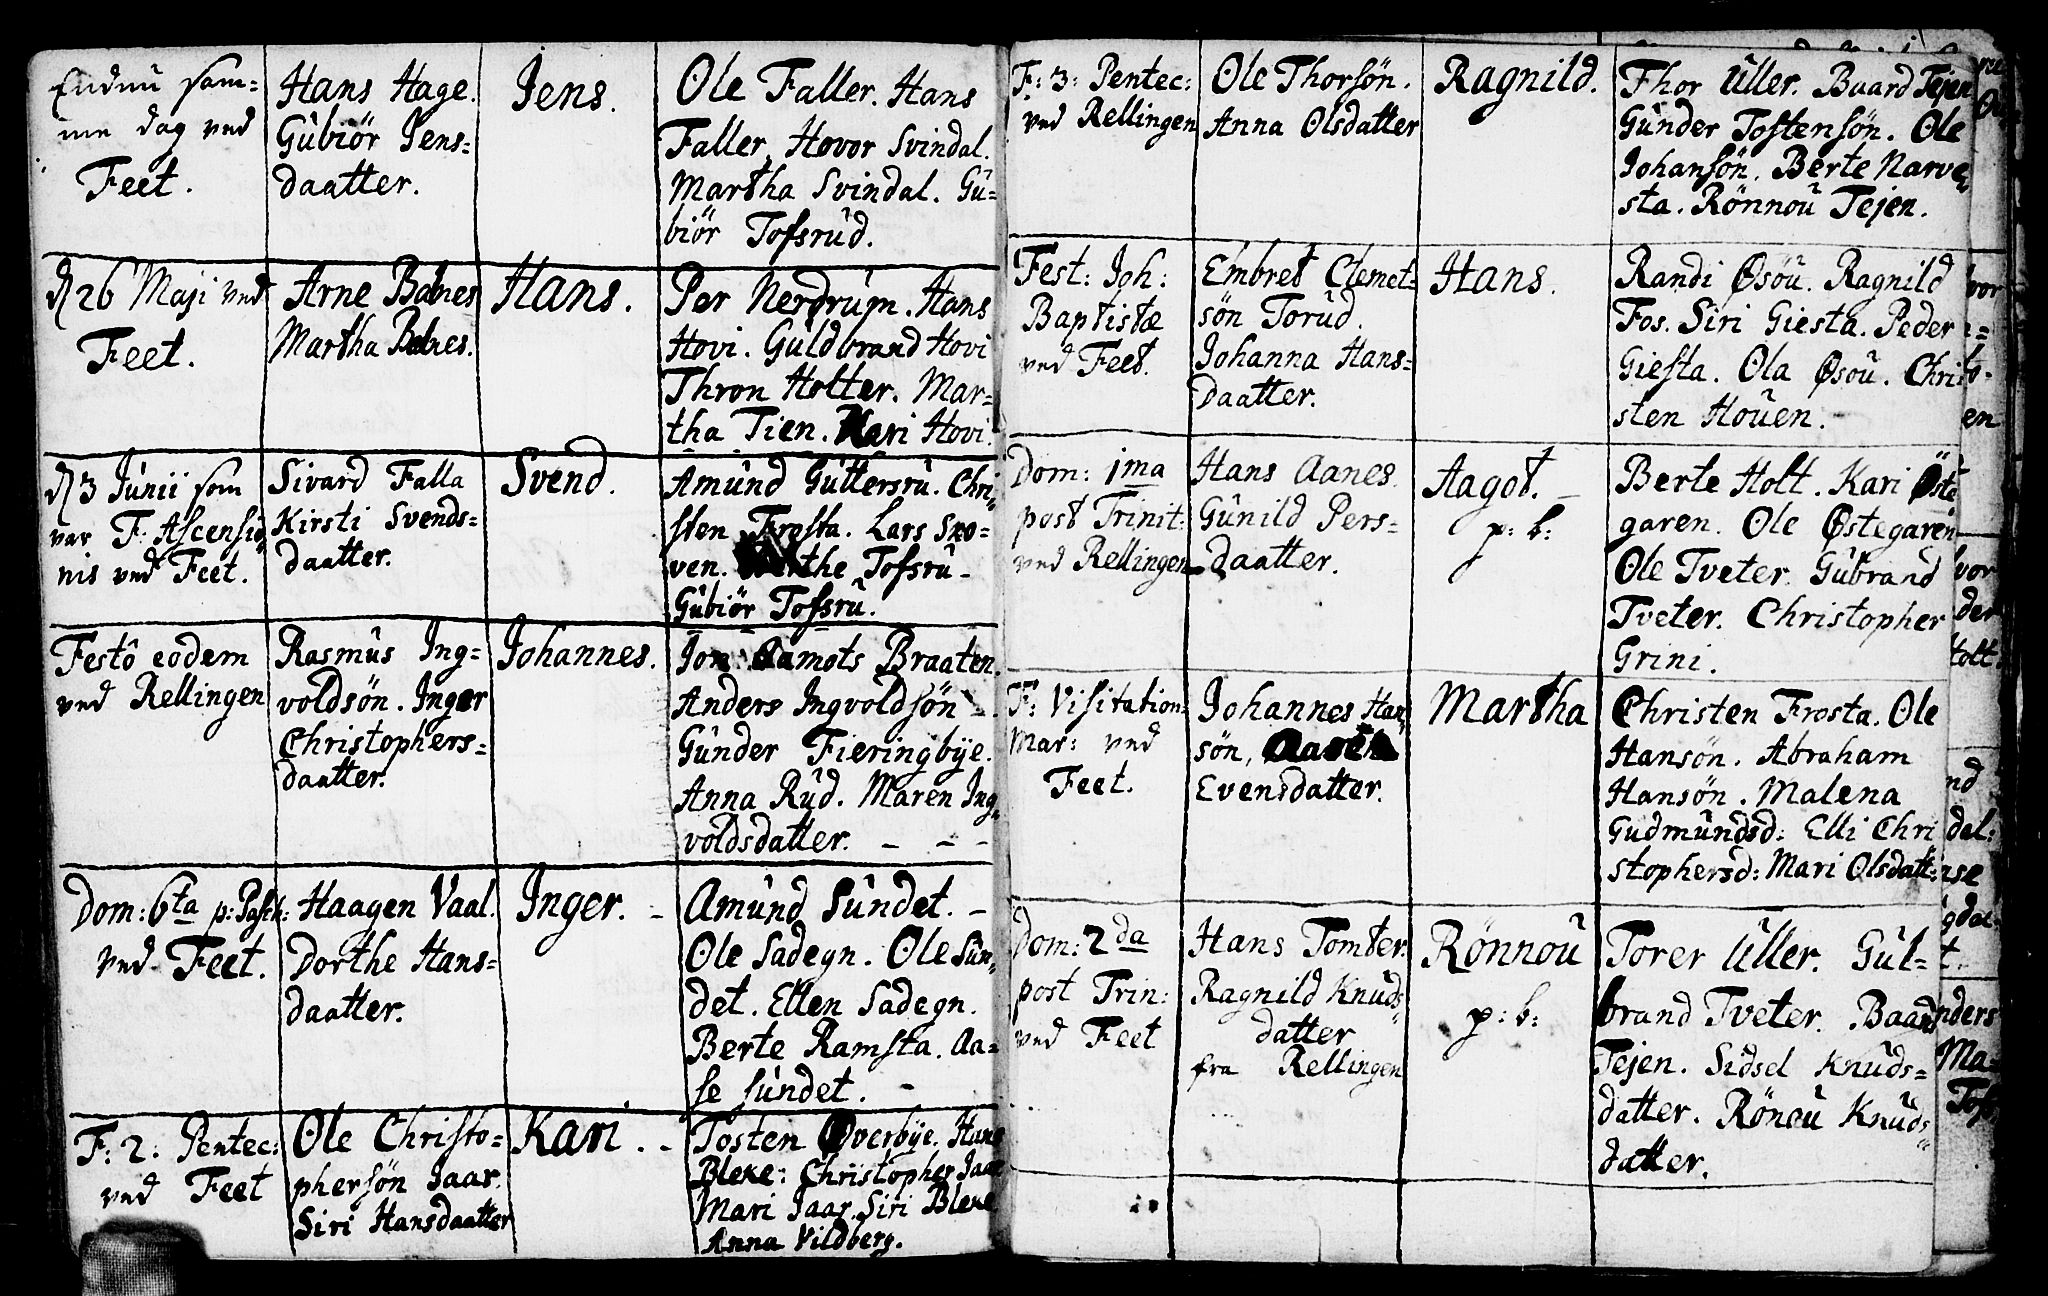 Endnu sam=
me dag ved
Feet.
Hans Hage.
Gubiör Jens=
daatter.
Jens.
Ole Faller. Hans
Faller. Hovor Svindal.
Martha Svindal. Gu=
biör Tofsrud.
d 26 Maji ved
Feet.
Arne Babnes
Martha Babnes.
Hans.
Per Nerdrum. Hans
Hovi. Guldbrand Hovi
Thron Holter. Mar=
tha Tien. Kari Hovi.
d 3 Junii som
var F: Ascensio
nis ved Feet.
Sivard Falla
Kirsti Svends=
daatter.
Svend.
Amund Guttersru. Chri=
sten Frosta. Lars Sko=
ven. Marthe Tofsru.
Gubiör Tofsru.
Festô eodem
ved Rellingen
Rasmus Ing=
voldsön. Inger
Christophers=
daatter.
Johannes.
Jon Aamots Braaten.
Anders Ingvoldsön.
Gunder Fieringbÿe.
Anna Rud. Maren Ing=
voldsdatter.
Dom: 6ta p: Pasch:
ved Feet.
Haagen Vaal.
Dorthe Hans=
daatter.
Inger.
Amund Sundet.
Ole Sadegn. Ole Sun=
det. Ellen Sadegn.
Berte Ramsta. Aa=
se Sundet.
F: 2: Pentec:
ved Feet
Ole Christo=
phersön Jaar.
Siri Hansdaatter
Kari.
Tosten Øverbÿe. Hans
Bleke: Christopher Jaar
Mari Jaar. Siri Bleke
Anna Vildberg.
F: 3: Pentec:
ved Rellingen
Ole Thorsön.
Anna Olsdatter
Ragnild.
Thor Uller. Baard Tejen
Gunder Tostensön. Ole
Johansön. Berte Narve=
sta. Rönnou Tejen.
Fest: Joh:
Baptistæ
ved Feet.
Embret Clemet=
sön Torud.
Johanna Hans=
daatter.
Hans.
Randi Øsöu. Ragnild
Fos. Siri Giesta. Peder
Giesta. Ola Øsou. Chri
sten Houen.
Dom: 1ma
post Trinit:
ved Rellingen
Hans Aanes.
Gunild Pers=
daatter.
Aagot.
p: b:
Berte Holt. Kari Øste
garen. Ole Østegaren
Ole Tveter. Gubrand
Tveter. Christopher
Grini.
F: Visitation:
Mar: ved
Feet.
Johannes Han=
sön,
Evensdatter.
Martha
Christen Frosta. Ole
Hansön. Abraham
Hansön. Malena
Gudmundsd: Elli Chri
stophersd: Mari Olsdatt:
Dom: 2da
post Trin:
ved Feet
Hans Tomter.
Ragnild Knuds=
datter
fra Rellingen
Rönnou
p: b:
Torer Uller. Gul=
brand Tveter. Baard
Tejen. Sidsel Knuds=
datter. Rönou Knuds=
datter.